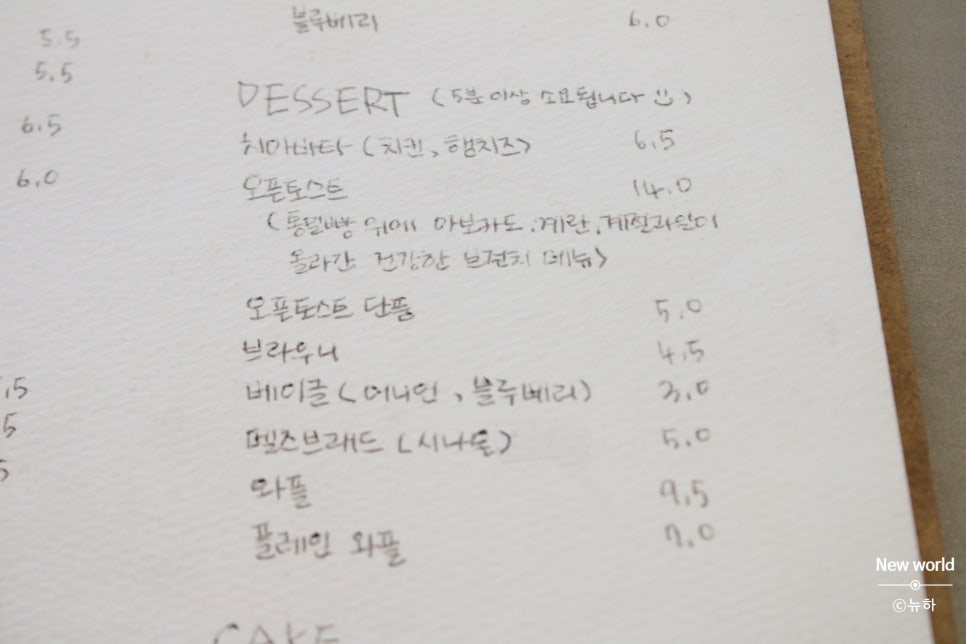 블루베리 6.0
5.5
5.5
6.5
6.0
DESSERT (5분이상 소요됩니다 :))
치아바타 (치킨, 햄치즈) 6.5
오픈토스트 14.0
(통밀빵 위에 아보카도, 계란, 계절과일이
올라간 건강한 브런치 메뉴)
오픈토스트 단품 5.0
브라우니 4.5
.5
베이글 (어니언, 블루베리) 3.0
5
멜츠브레드 (시나몬) 5.0
5
와플 9.5
플레인 와플 7.0
CAKE
New world
ⓒ뉴하